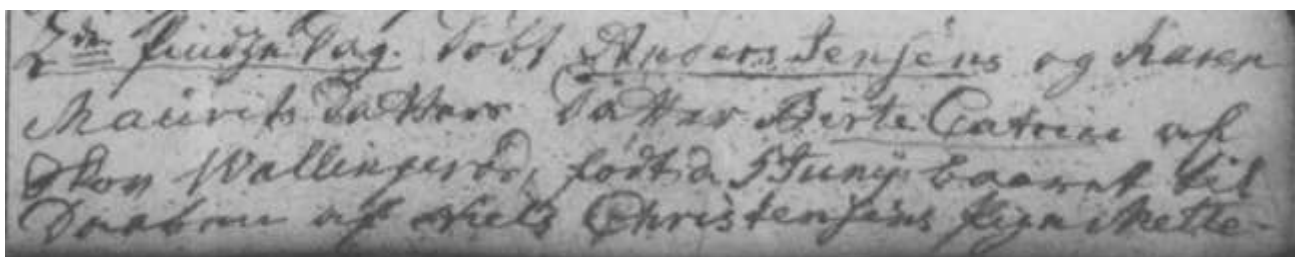 2den Pindze Dag. Døbt Anders Jensens og Karen
Maurits Datters Datter Birte Catrine af
Skov Wallingerød, født d 5 Juny baaret til
Daaben af Niels Christensens Pige Mette